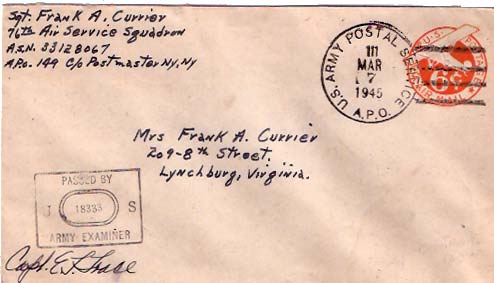 Sgt. Frank A. Currier
76th Air Service Squadron
A.S.N. 33128067
A.P.O. 149 c/o Postmaster Ny, Ny
U.S. ARMY POSTAL SERVICE
MAR
7
1945
A.P.O.
U.S. POSTAGE
6¢
AIR MAIL
Mrs Frank A. Currier
209-8th Street.
Lynchburg, Virginia.
PASSED BY
J 18333 S
ARMY EXAMINER
Capt. E.